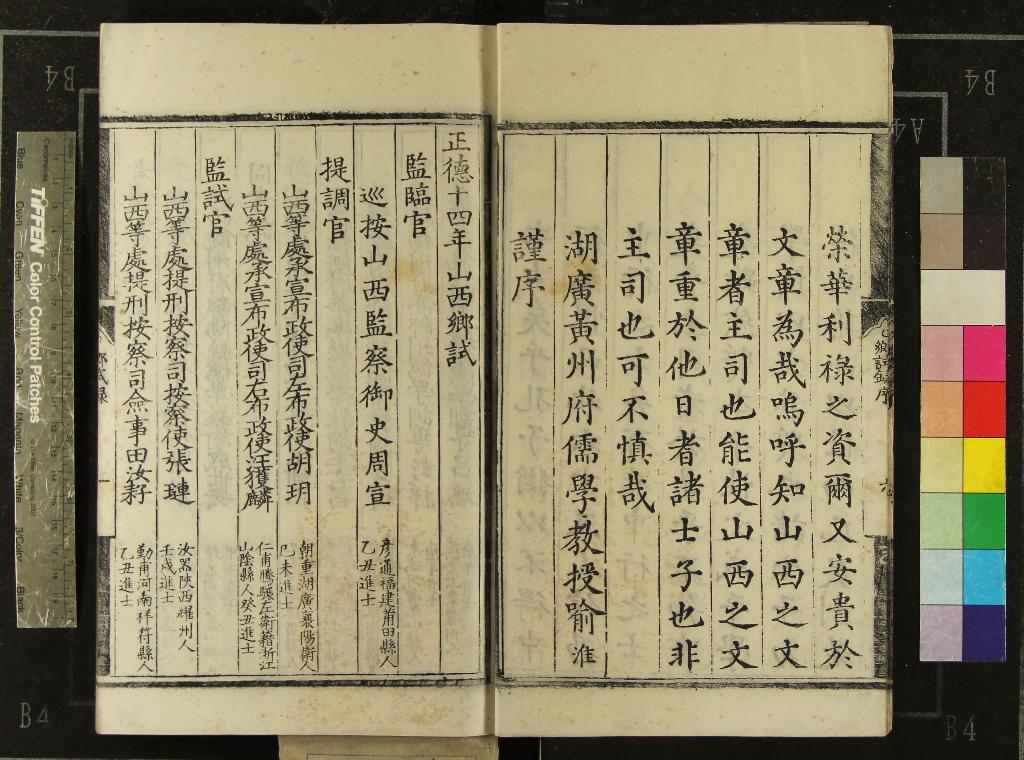 榮華利祿之資爾又安貴於
文章為哉嗚呼知山西之文
章者主司也能使山西之文
章重於他日者諸士子也非
主司也可不慎哉
湖廣黃州府儒學教授喻淮
謹序
鄉試錄序
六
正德十四年山西鄉試
監臨官
巡按山西監察御史周宣
彥通福建莆田縣人
乙丑進士
提調官
山西等處承宣布政使司左布政使胡玥
朝重湖廣襄陽衛人
己未進士
山西等處承宣布政使司右布政使汪獲麟
仁甫騰驤左衛籍浙江
山陰縣人癸丑進士
監試官
山西等處提刑按察司按察使張璉
汝器陝西耀州人
壬戌進士
山西等處提刑按察司僉事田汝耔
勤甫河南祥符縣人
乙丑進士
鄉試錄
一
B4
B4
A4
B4
B4
TIFFEN Color Control Patches
Centimetres
Blue
Cyan
Green
Yellow
Red
Magenta
White
3/Color
Black